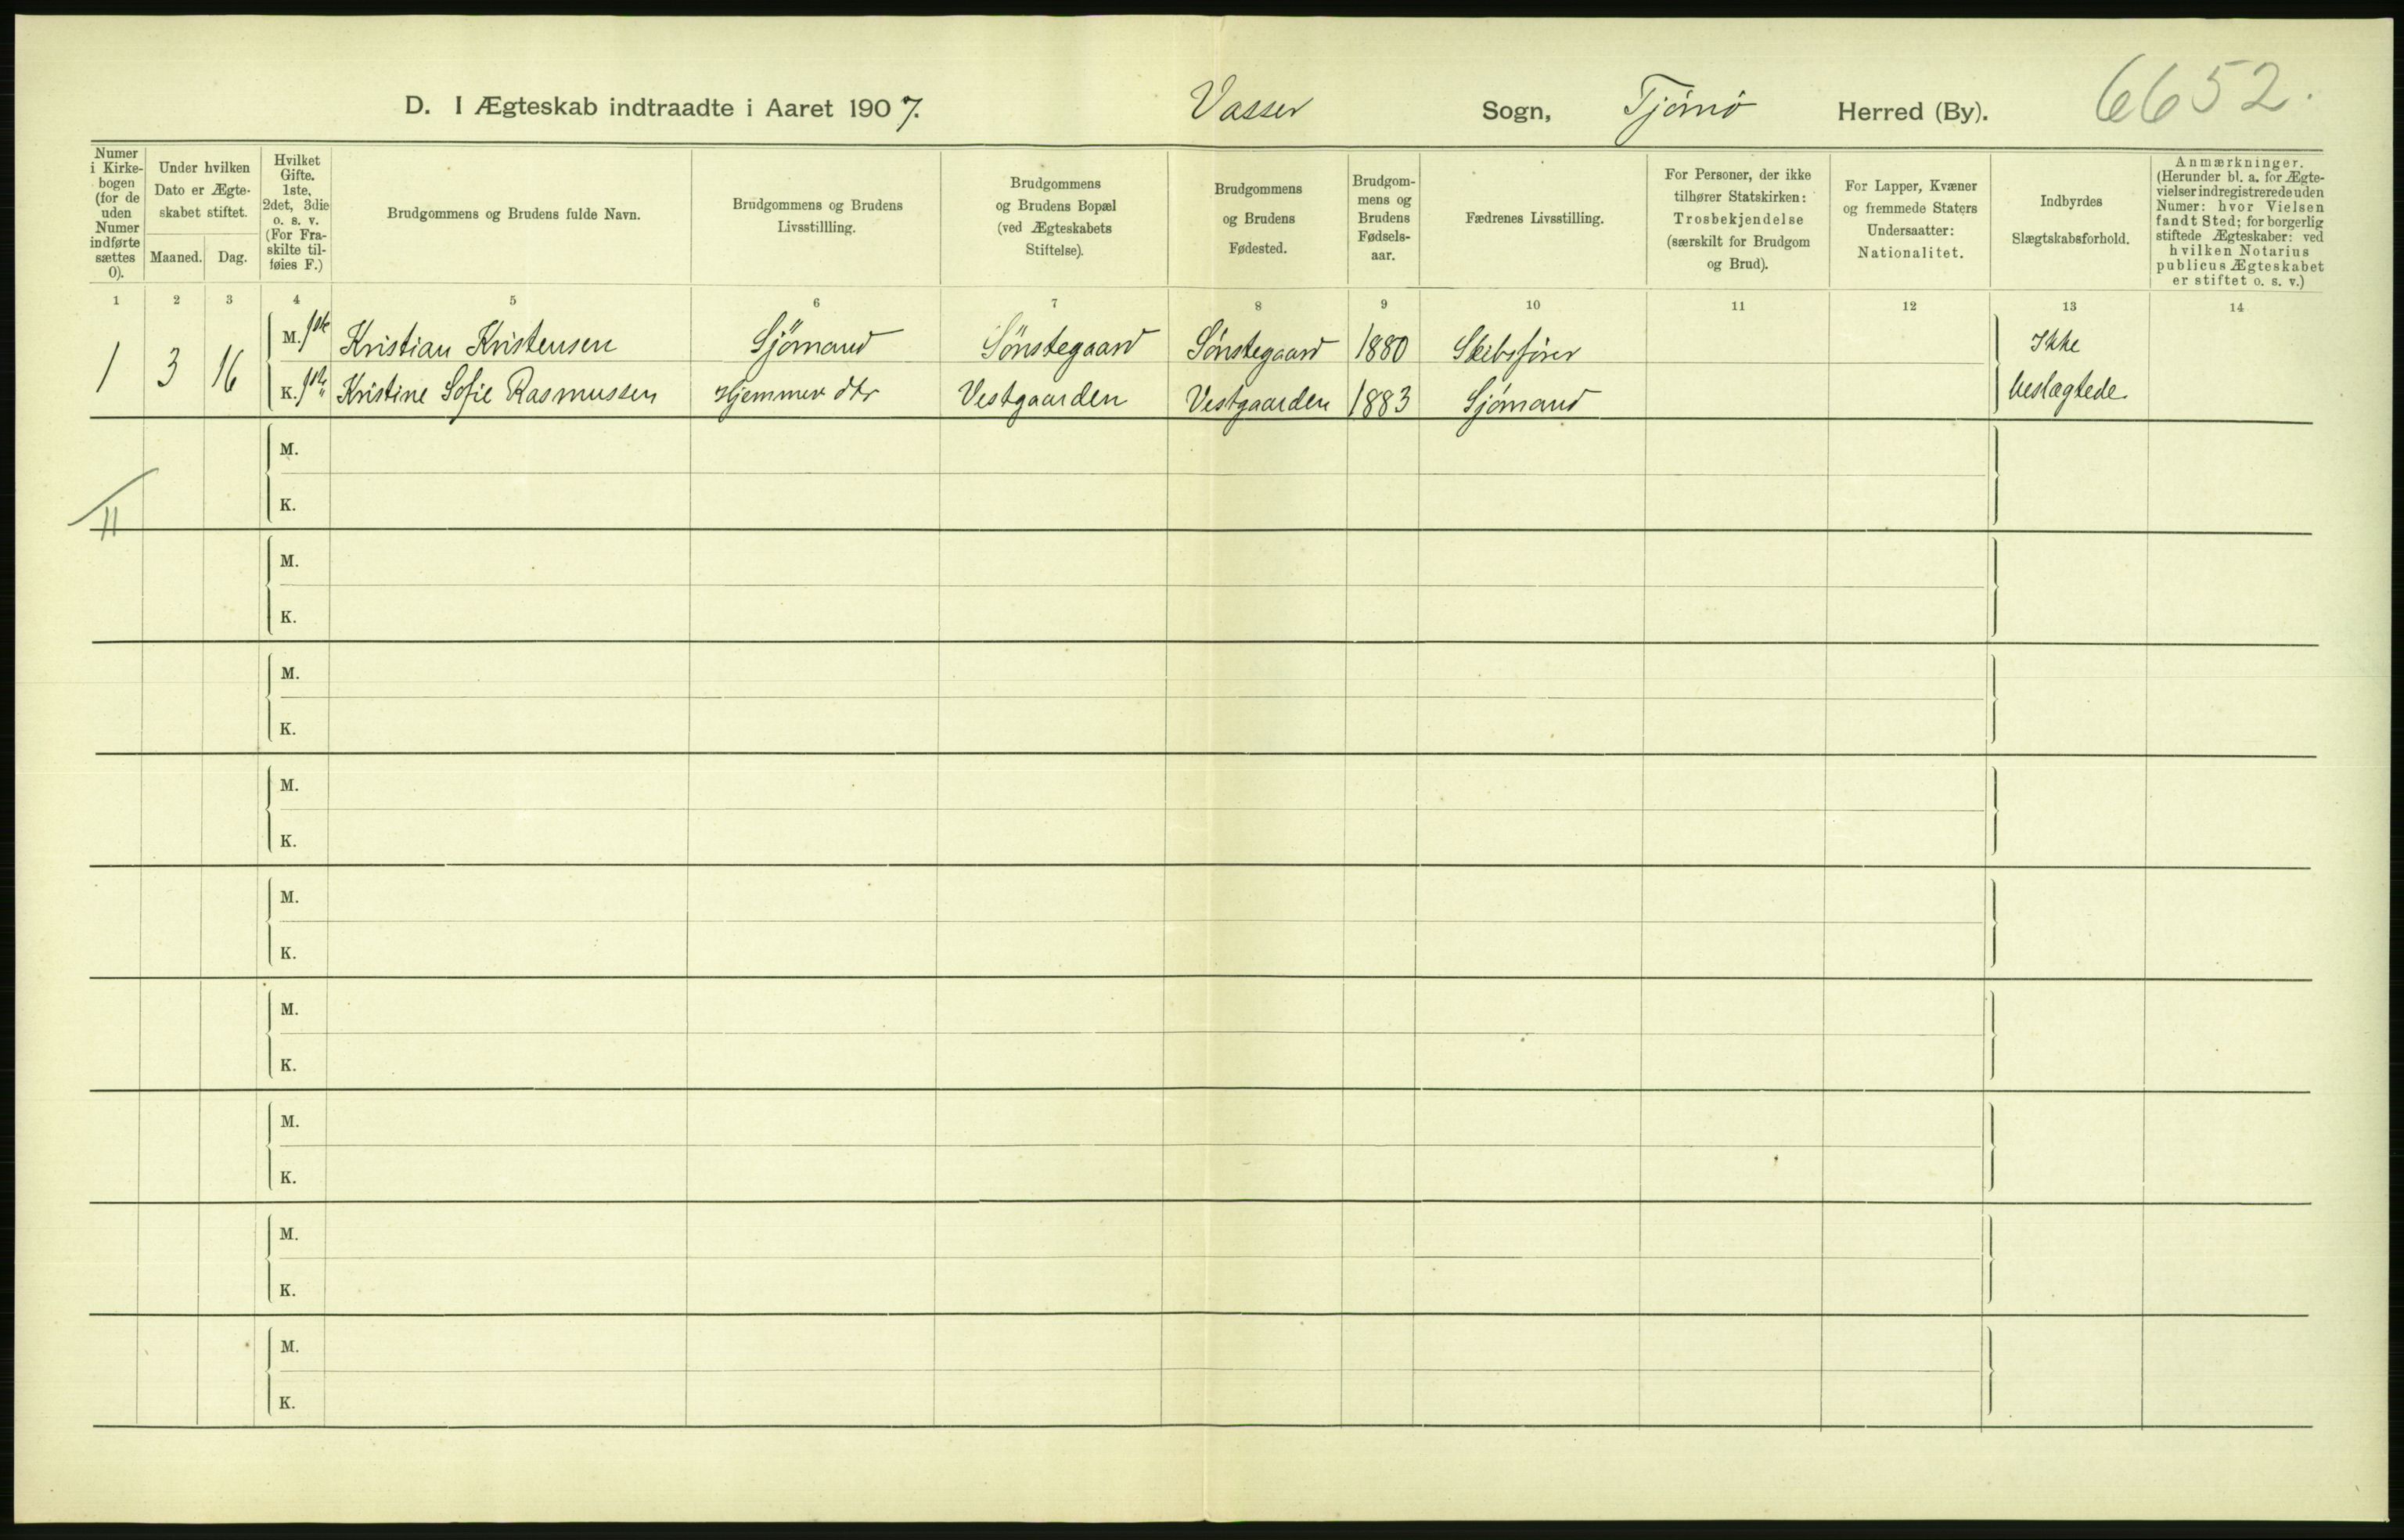 D. I Ægteskab indtraadte i Aaret 1907. Vasser Sogn, Tjømø Herred (By). 6652.
Numer i Kirke-bogen (for de uden Numer indførte sættes 0).
Under hvilken Dato er Ægte-skabet stiftet.
Maaned. Dag.
Hvilket Gifte. 1ste, 2det, 3die o. s. v. (For Fra-skilte til-føies F.)
Brudgommens og Brudens fulde Navn.
Brudgommens og Brudens Livsstillling.
Brudgommens og Brudens Bopæl (ved Ægteskabets Stiftelse).
Brudgommens og Brudens Fødested.
Brudgom-mens og Brudens Fødsels-aar.
Fædrenes Livsstilling.
For Personer, der ikke tilhører Statskirken: Trosbekjendelse (særskilt for Brudgom og Brud).
For Lapper, Kvæner og fremmede Staters Undersaatter: Nationalitet.
Indbyrdes Slægtskabsforhold.
Anmærkninger. (Herunder bl. a. for Ægte-vielser indregistrerede uden Numer: hvor Vielsen fandt Sted; for borgerlig stiftede Ægteskaber: ved hvilken Notarius publicus Ægteskabet er stiftet o. s. v.)
1 2 3 4 5 6 7 8 9 10 11 12 13 14
1 3 16 M. 1ste Kristian Kristensen Sjømand Sønstegaard Sønstegaard 1880 Skibsfører Ikke
K. 1ste Kristine Sofie Rasmussen Hjemmev dtr Vestgaarden Vestgaarden 1883 Sjømand beslægtede
M.
K.
M.
K.
M.
K.
M.
K.
M.
K.
M.
K.
M.
K.
M.
K.
M.
K.